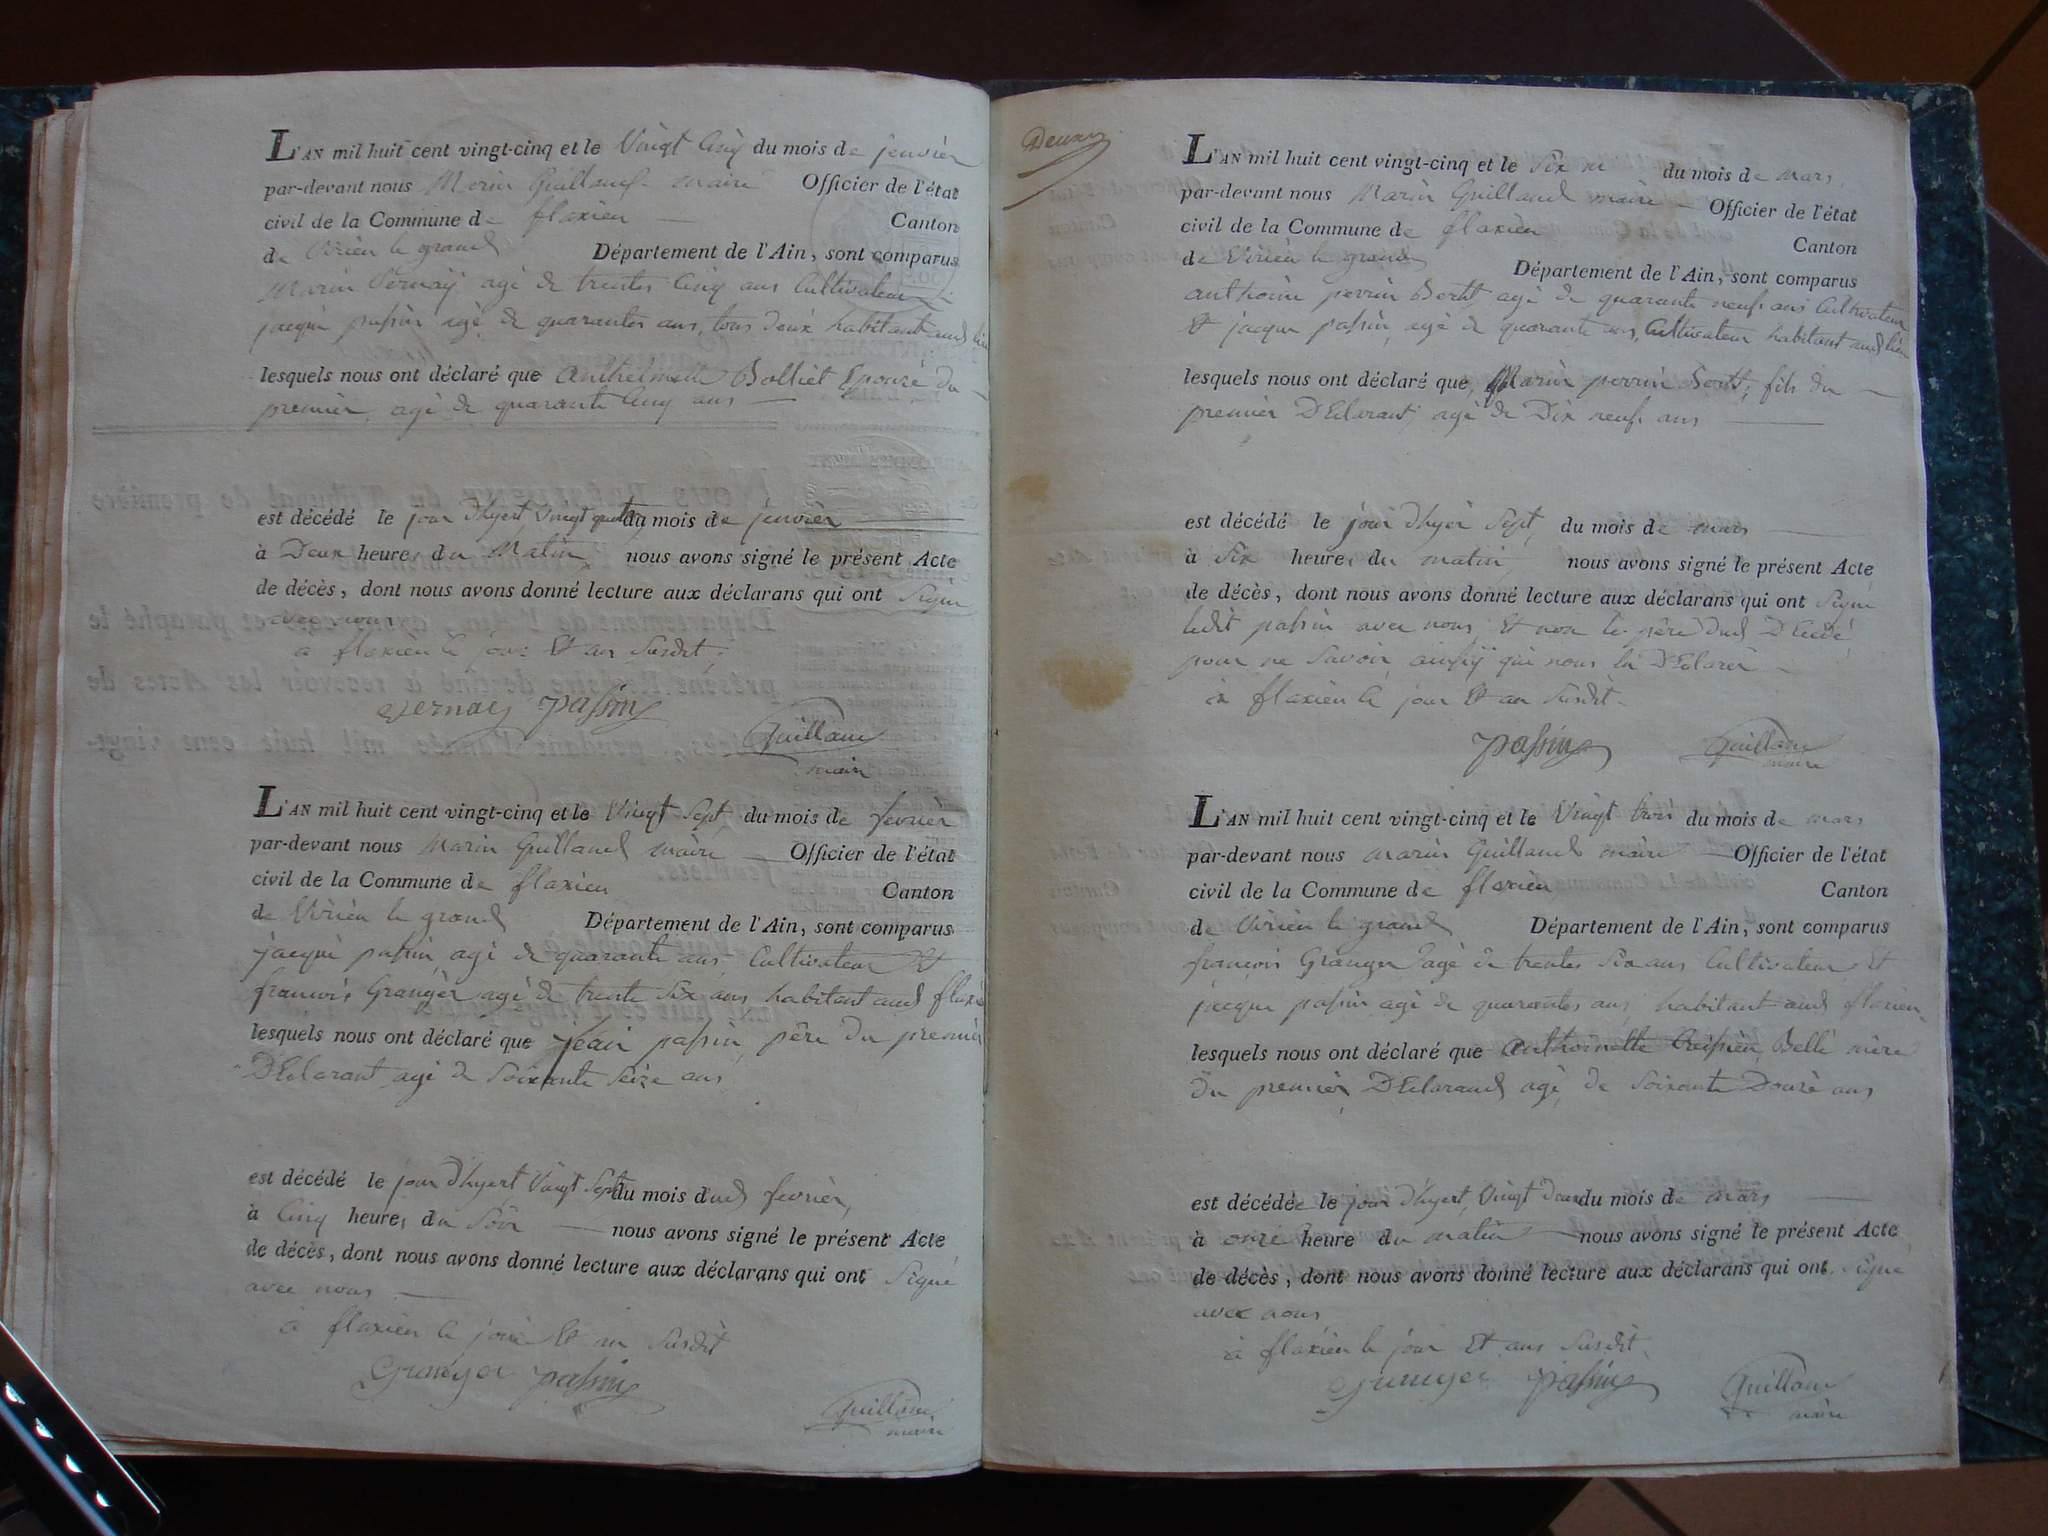 L'AN mil huit cent vingt-cinq et le Vingt Cinq du mois de jenvièr
par-devant nous Marin Guilland maire Officier de l'état
civil de la Commune de flaxieu Canton
de Virieu le grand Département de l'Ain, sont comparus
Marin Vernay agé de trentes Cinq ans Cultivateur
jacque passin agé de quarantes ans, tous deux habitant aud lieu
lesquels nous ont déclaré que Anthelmette Bolliet Epouse du
premier, agé de quarante Cinq ans
est décédé le jour d'hyert Vingt quatre du mois de jenvièr
à Deux heures du Matin nous avons signé le présent Acte
de décès, dont nous avons donné lecture aux déclarans qui ont Signé
avec nous
à flaxieu le jour Et an Susdit;
Vernay passin
Guilland
maire
L'AN mil huit cent vingt-cinq et le Vingt Sept du mois de fevrièr
par-devant nous Marin Guilland maire Officier de l'état
civil de la Commune de flaxieu Canton
de Virieu le grand Département de l'Ain, sont comparus
jacque passin agé de quarante ans Cultivateur Et
francois Grangèr agé de trente Six ans habitant aud flaxieu
lesquels nous ont déclaré que jean passin, père du premièr
D'Eclarant agé de Soixante Seize ans
est décédé le jour d'hyert Vingt Sept du mois dud fevrièr,
à Cinq heures du Soir nous avons signé le présent Acte
de décès, dont nous avons donné lecture aux déclarans qui ont Signé
avec nous
à flaxieu le jour Et an Susdit
Granger passin
Guilland
maire
Deux
L'AN mil huit cent vingt-cinq et le Six du mois de mars
par-devant nous Marin Guilland maire Officier de l'état
civil de la Commune de flaxieu Canton
de Virieu le grand Département de l'Ain, sont comparus
anthoine perrin Bertet agé de quarante neuf ans Cultivateur
Et jacque passin, agé de quarante ans, Cultivateur habitant aud lieu
lesquels nous ont déclaré que Marin perrin Bertet, fils du
premièr D'Eclarant agé de Dix neuf ans
est décédé le jour d'hyèr Sept du mois de mars
à Six heures du matin nous avons signé le présent Acte
de décès, dont nous avons donné lecture aux déclarans qui ont Signé
ledit passin avec nous, Et non le père dud D'Ecédé
pour ne Savoir, qui nous la D'Eclaré
à flaxieu le jour Et an Susdit
passin Guilland
maire
L'AN mil huit cent vingt-cinq et le Vingt trois du mois de mars
par-devant nous marin Guilland maire Officier de l'état
civil de la Commune de flaxieu Canton
de Virieu le grand Département de l'Ain, sont comparus
francois Granger agé de trentes Six ans Cultivateur Et
jacque passin agé de quarantes ans habitant aud flaxieu
lesquels nous ont déclaré que anthoinette Belle mère
du premièr D'Eclarand agé, de Soixante Douze ans
est décédée le jour d'hyert, Vingt Deux du mois de mars
à onze heure du matin nous avons signé le présent Acte
de décès, dont nous avons donné lecture aux déclarans qui ont Signé
avec nous
à flaxieu le jour Et ans Susdit
Granger passin Guilland
maire